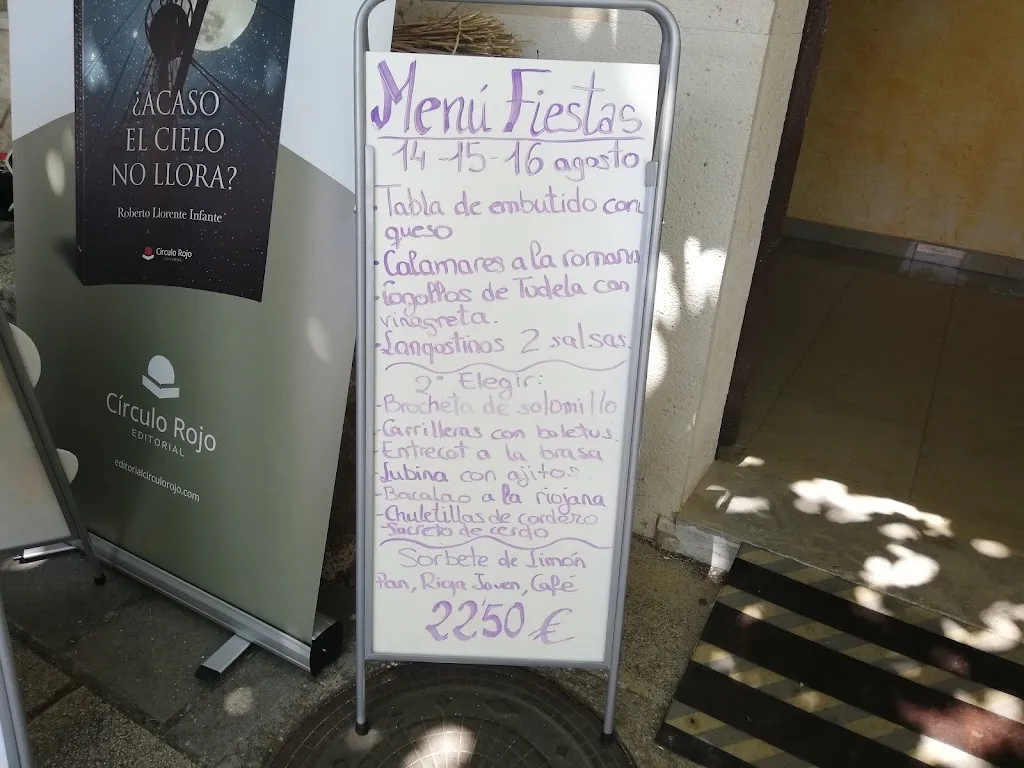 ¿ACASO
EL CIELO
NO LLORA?
Roberto Llorente Infante
Círculo Rojo
EDITORIAL
Círculo Rojo
EDITORIAL
editorialcirculorojo.com
Menú Fiestas
14-15-16 agosto
· Tabla de embutido con
queso
· Calamares a la romana
· Cogollos de Tudela con
vinagreta.
· Langostinos 2 salsas.
2º Elegir:
- Brocheta de solomillo
- Carrilleras con boletus.
- Entrecot a la brasa
- Lubina con ajitos
- Bacalao a la riojana
- Chuletillas de cordero
- Secreto de cerdo
Sorbete de Limón
Pan, Rioja Joven, Café
22'50 €